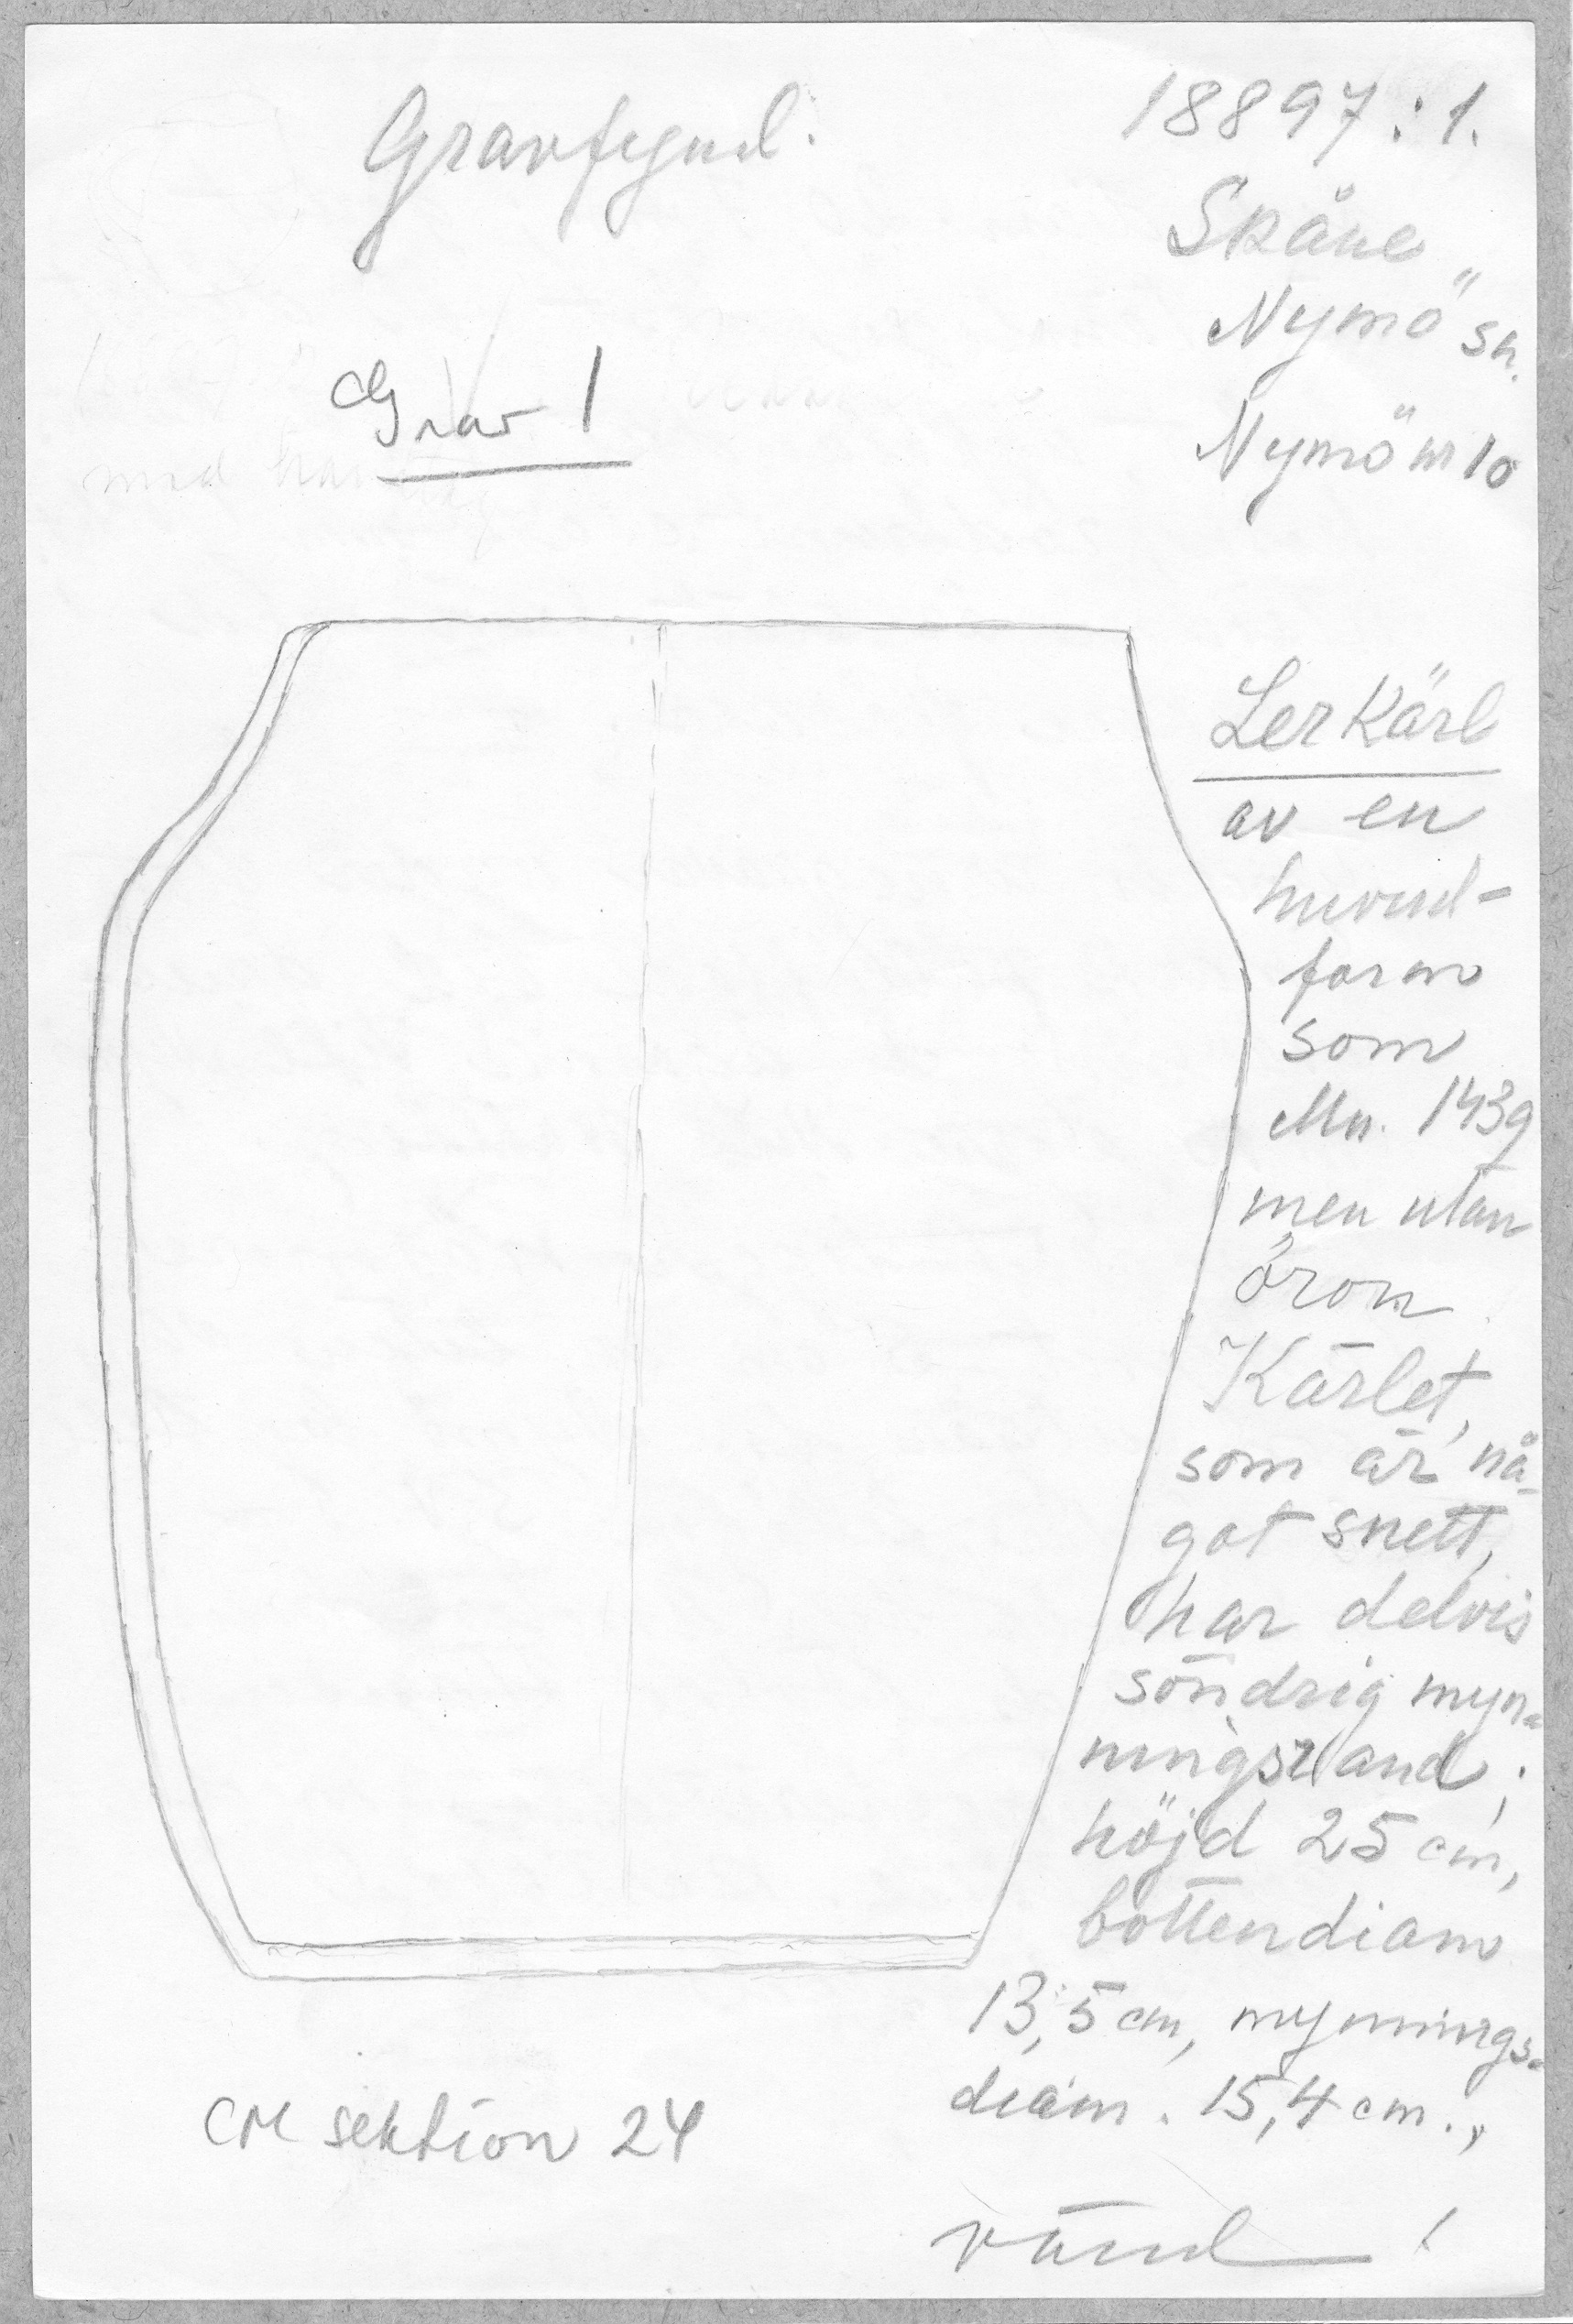 Gravfynd.
18897:1.
Skåne
Nymö sn.
Grav 1
Nymö nr 10
Lerkärl
av en
huvud-
form
som
Mn. 1439
men utan
öron.
Kärlet,
som är nå-
got snett,
har delvis
söndrig myn-
ningsrand;
höjd 25 cm,
bottendiam
13,5 cm, mynnings-
diam. 15,4 cm.,
CM sektion 24
vänd!